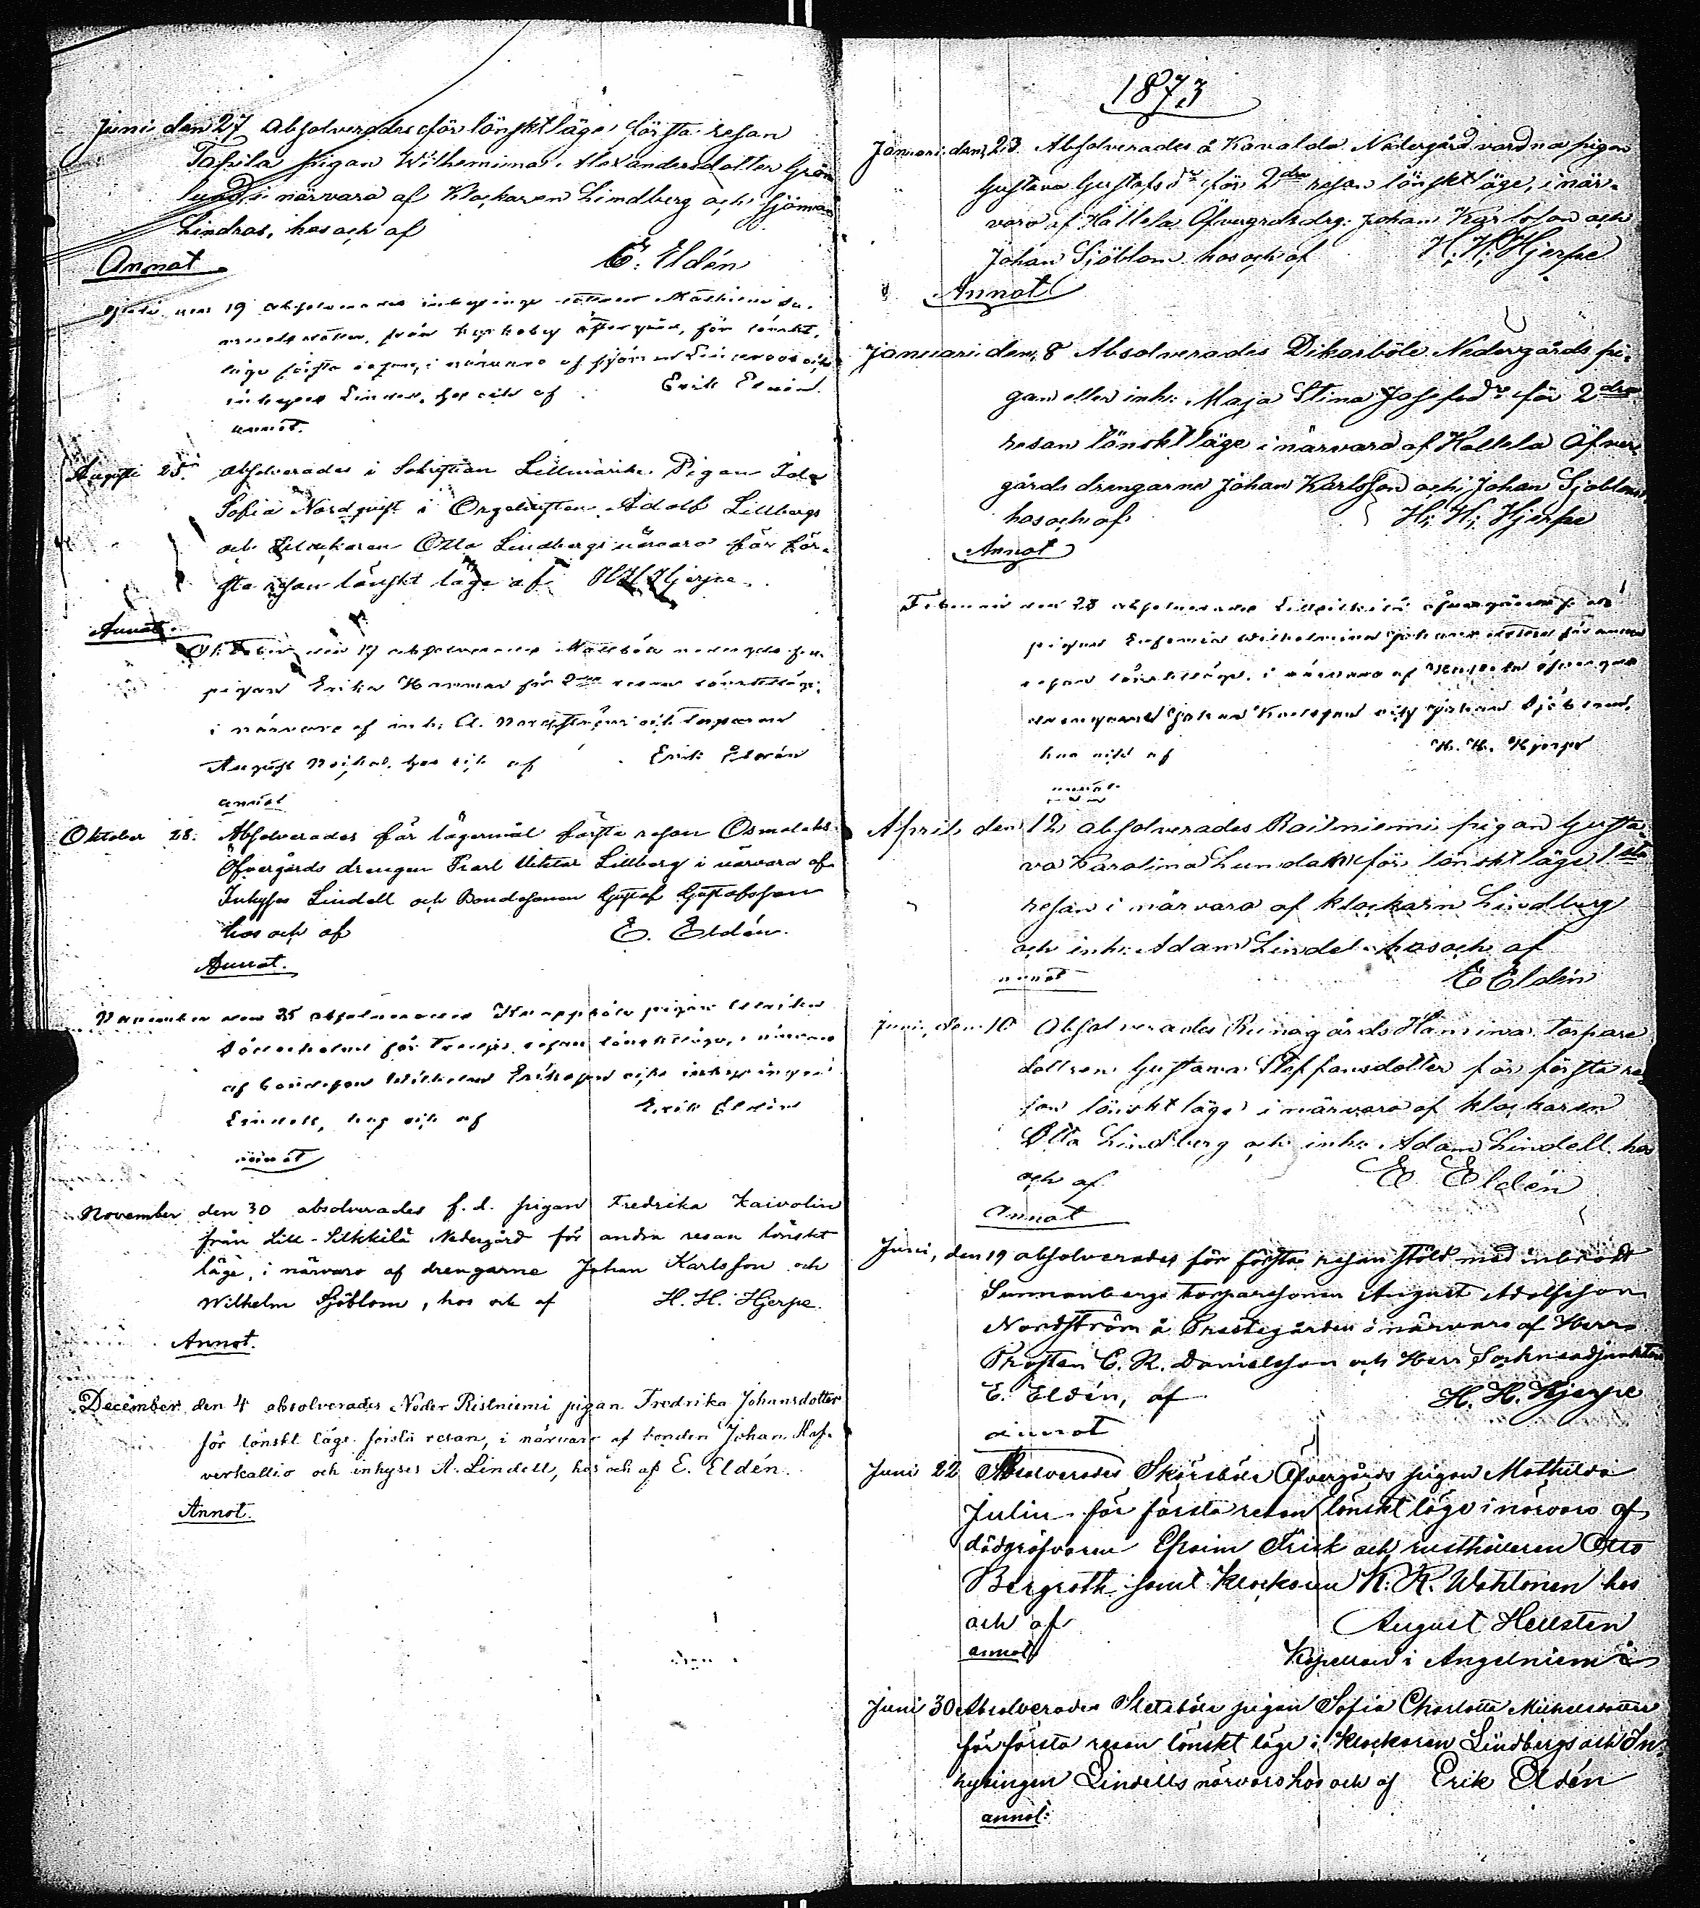 Juni den 27 Absolverades för lönskt läge första resan
Tapila pigan Wilhelmina Alexandersdotter Grön
lund i närvaro af Klockaren Lindberg och Sjöman
Lindros, hos och af
E. Eldén
Annot
den 19 absolverades
från öfvergård, för lönskt
läge första resan, i närvaro af
hos och af Erik Eldén
annot.
Augusti 25. absolverades i Sakristian Pigan Ida
Sofia Nordqvist i Orgelnisten Adolf Lillbergs
och Klockaren Otto Lindbergs närvaro för för-
sta resan lönskt läge af H H Hjerpe.
Annot.
Oktober den 17 absolverades nedergårds
pigan Erika Hammar för 2dra resan lönskt läge,
i närvaro af inh. A. och torparen
August hos och af Erik Eldén
annot
Oktober 28. Absolverades för lägersmål första resan
Öfvergårds drengen Karl Viktor Lillberg i närvaro af
Inhyses Lindell och Bondesonen Gustaf Gustafsson
hos och af E. Eldén.
Annot.
November den 25 absolverades pigan Ulrika
för tredje resan lönskt läge, i närvaro
af bondeson Wilhelm Eriksson och inhysingen
Lindell, hos och af Erik Eldén
annot
November den 30 absolverades f.d. pigan Fredrika Kaivolin
från Lill-Silkkilä Nedergård för andra resan lönskt
läge, i närvaro af drengarne Johan Karlsson och
Wilhelm Sjöblom, hos och af H. H. Hjerpe.
Annot.
December den 4 absolverades Neder Ristniemi pigan Fredrika Johansdotter
för lönskt läge första resan, i närvaro af bonden Johan Haf-
verkallio och inhyses A. Lindell, hos och af E. Eldén.
Annot.
1873
Januari den 23 Absolverades å Karvalda Nedergård vardna pigan
Gustava Gustafsdr för 2dra resan lönskt läge, i när-
varo af Hallela Öfvergrds drg. Johan Karlsson och
Johan Sjöblom hos och af H. H. Hjerpe
Annot
Januari den 8 Absolverades Dikarböle Nedergårds pi-
gan eller inh. Maja Stina Josefsdr för 2dra
resan lönskt läge i närvaro af Hallela Öfver-
gårds drengarna Johan Karlsson och Johan Sjöblom,
hos och af H. H. Hjerpe
Annot
Februari den 28 absolverades öfvergårds f. d.
pigan Eufemia Wilhelmina för annan
resan lönskt läge, i närvaro af öfvergårds
drengarne Johan Karlsson och Johan Sjöblom,
hos och af H. H. Hjerpe
annot
April den 12 absolverades Raitniemi pigan Gusta-
va Karolina Lundahl för lönskt läge 1sta
resan i närvaro af klockarn Lindberg
och inh. Adam Lindel hos och af
annot E Eldén
Juni den 10 Absolverades Runagårds Hamina torpare
dottren Gustava Steffansdotter för första re-
san lönskt läge i närvaro af klockaren
Otto Lindberg och inh. Adam Lindell hos
och af E Eldén
Annot
Juni, den 19 absolverades för första resan stöld med inbrott
Sunnanbergs torparesonen August Adolfsson
Nordström å Prestegården i närvaro af Herr
Prosten C. R. Danielsson och Herr Socknéadjunkten
E. Eldén, af H. H. Hjerpe
annot
Juni 22 Absolverades Skärsböle Öfvergårds pigan Mathilda
Julin för första resan lönskt läge i närvaro af
dödgräfvaren Efraim Frisk och rusthållaren Otto
Bergroth samt klockaren K. K. Wahlonen hos
och af August Hellsten
annot Kapellan i Angelniemi
Juni 30 Absolverades Sletsböle pigan Sofia Charlotta Michelsdotter
för första resan lönskt läge i klockaren Lindbergs och In-
hysingen Lindells närvaro hos och af Erik Eldén
annot: